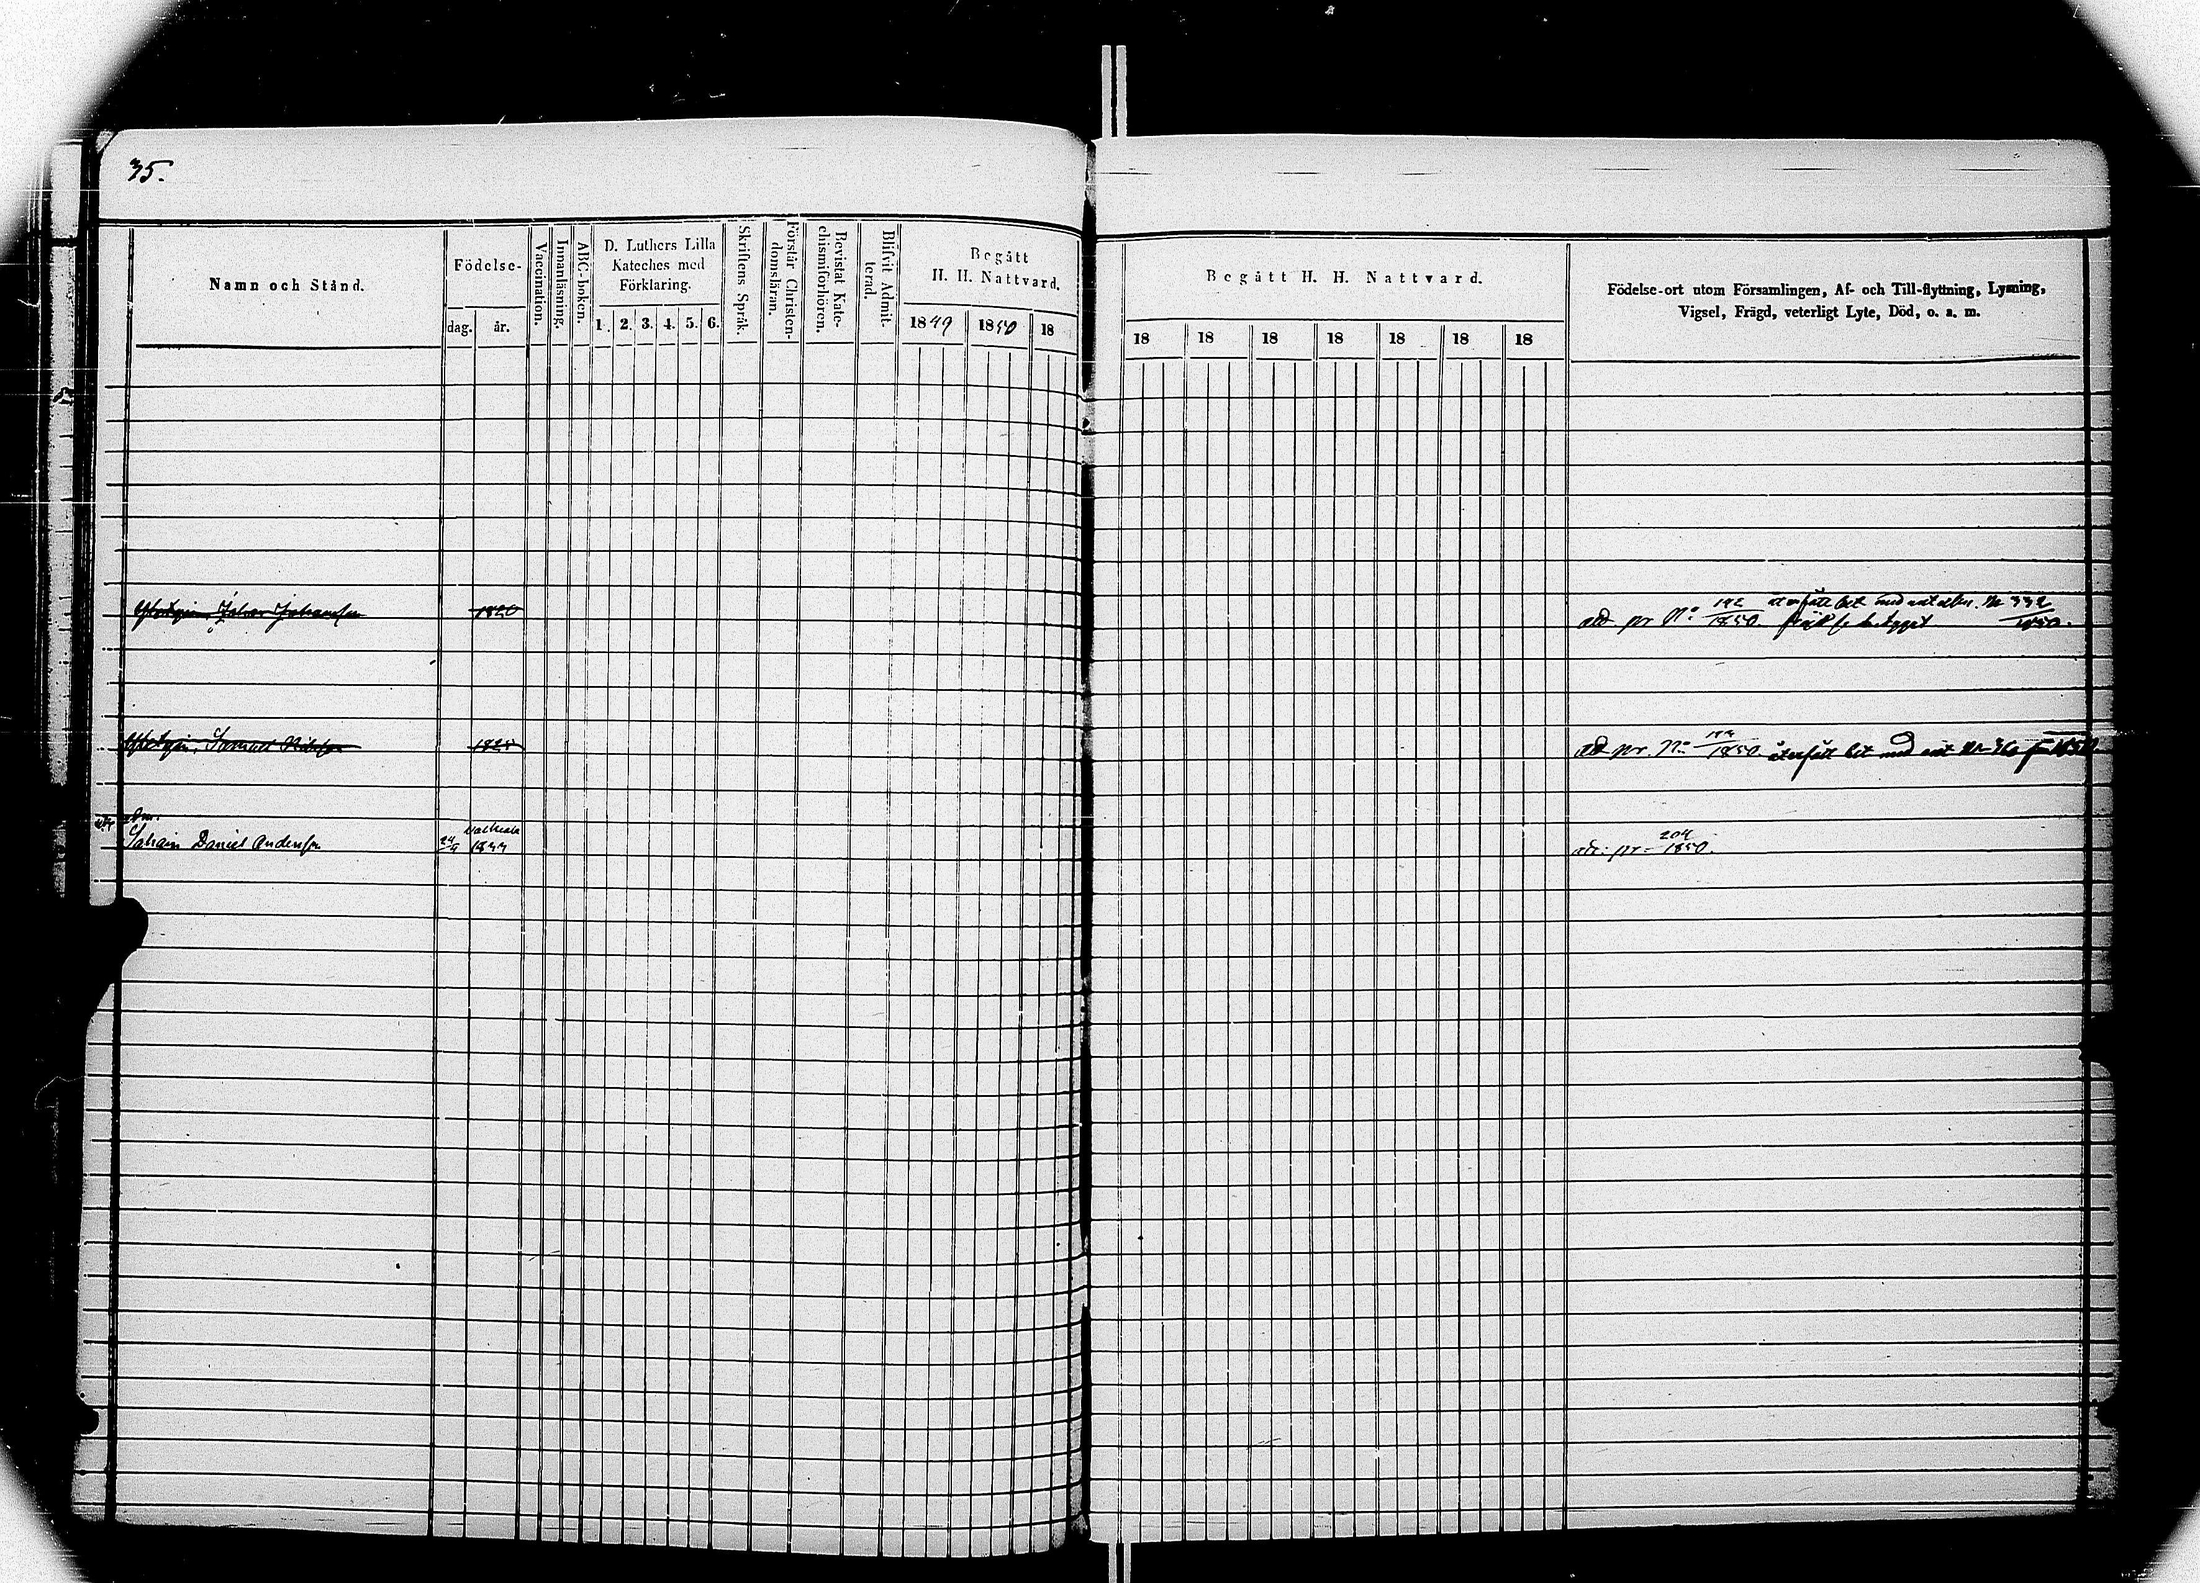 35.
Namn och Stånd.
Födelse-
dag.
år.
Vaccination.
Innanläsning.
ABC-boken.
D. Luthers Lilla
Kateches med
Förklaring.
1.
2.
3.
4.
5.
6.
Skriftens Språk.
Förstår Christen-
domsläran.
Bevistat Kate-
chismiförhören.
Blifvit Admit-
terad.
Begått
H. H. Nattvard.
1849
1850
18
Begått H. H. Nattvard.
18
18
18
18
18
18
18
Födelse-ort utom Församlingen, Af- och Till-flyttning, Lysning,
Vigsel, Frägd, veterligt Lyte, Död, o. a. m.
Johan Johansson
1820
återfått bet
332
att. pr No 192/1850.
1850.
Samuel
att. pr. No 1850. återfått bet med
Daniel Andersson
24
204
att: pr 1850.